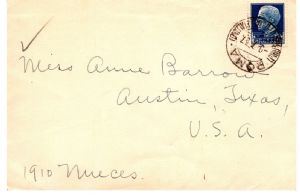 ROMA
Miss Anne Barrow
Austin, Texas,
U. S. A.
1910 Nueces.